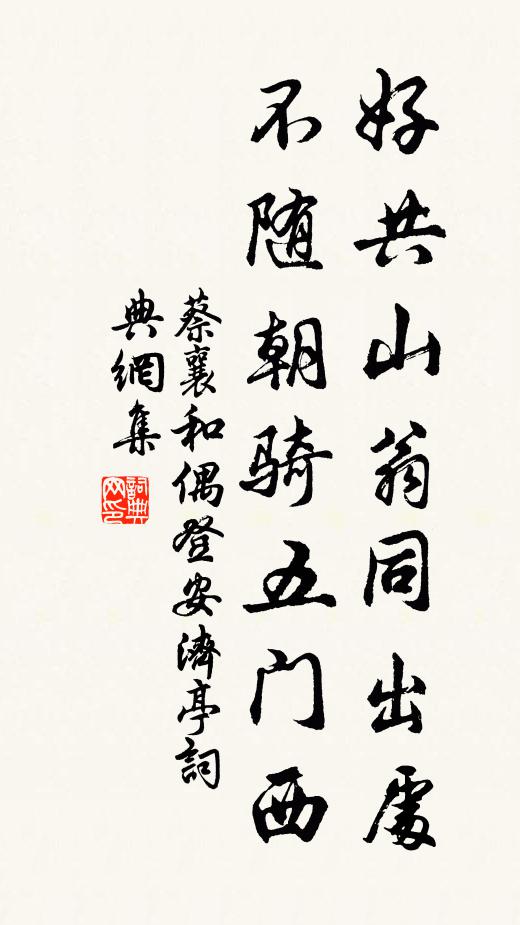 好共山翁同出處
不随朝骑五门西
蔡襄和偶登安濟亭詞
典網集
詞典网印